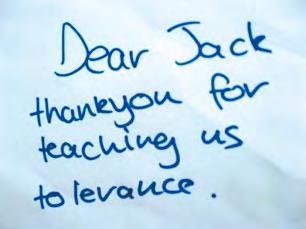 Dear Jack
thankyou for
teaching us
tolerance.